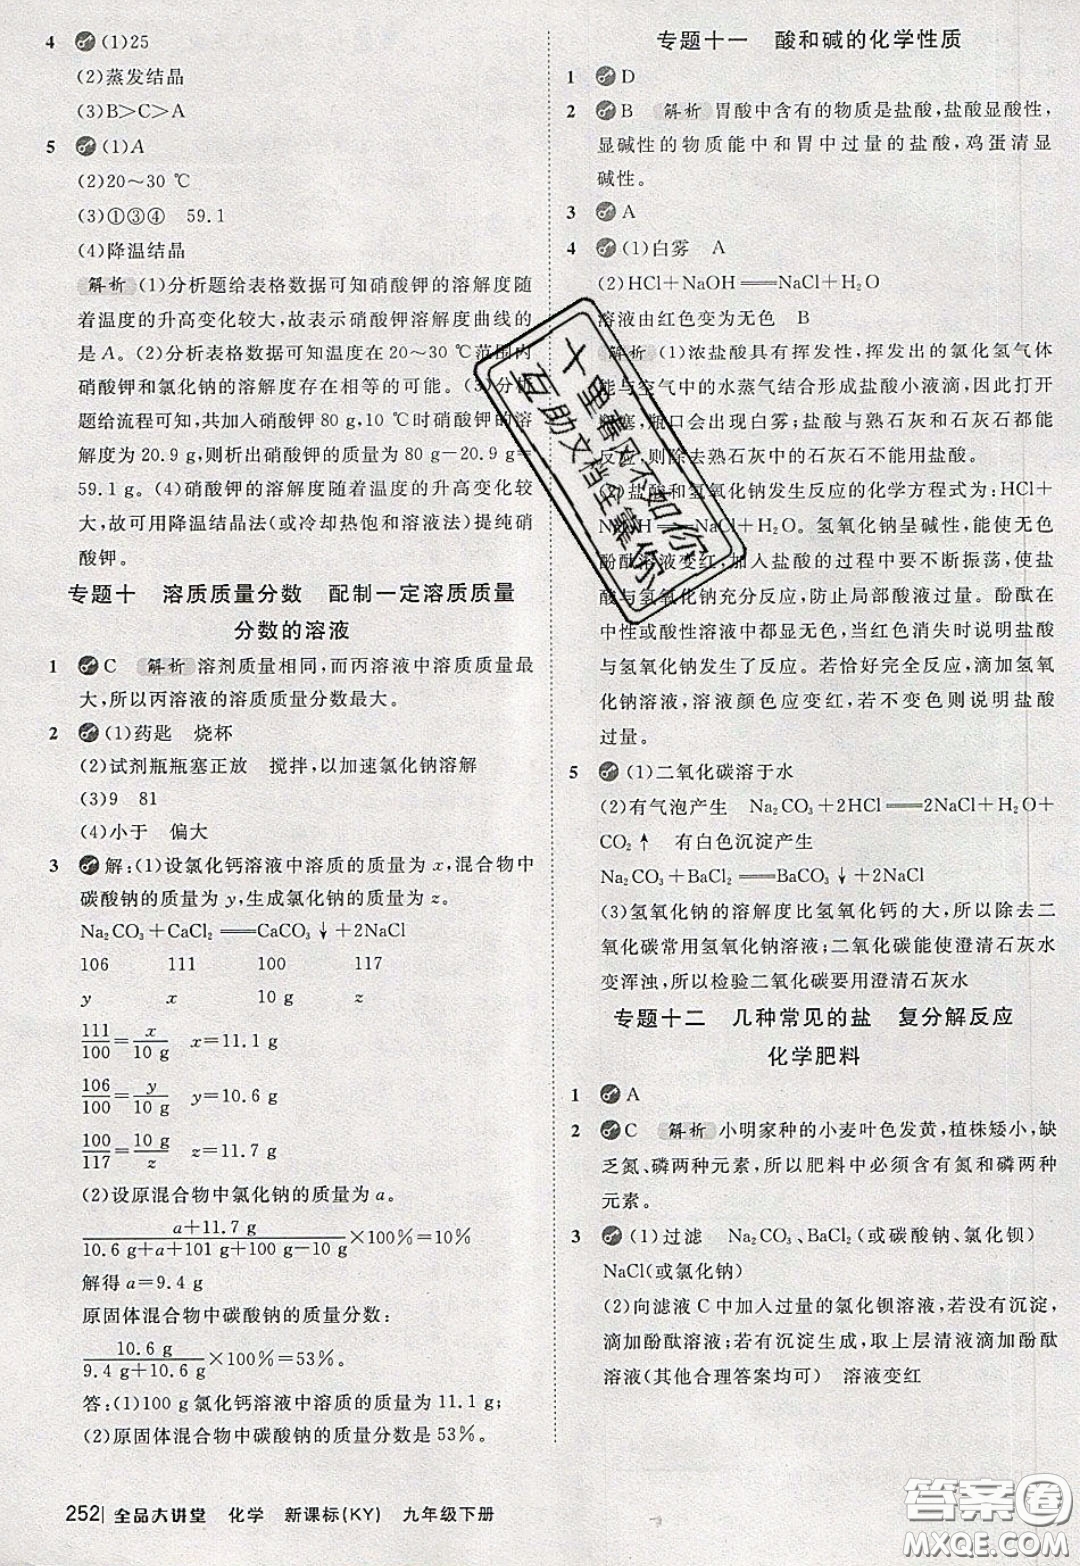 4 (1)25
(2)蒸发结晶
(3)B>C>A
5 (1)A
(2)20～30 ℃
(3)①③④ 59.1
(4)降温结晶
解析 (1)分析题给表格数据可知硝酸钾的溶解度随
着温度的升高变化较大,故表示硝酸钾溶解度曲线的
是A。(2)分析表格数据可知温度在20～30 ℃范围内
硝酸钾和氯化钠的溶解度存在相等的可能。(3)分析
题给流程可知,共加入硝酸钾80 g,10 ℃时硝酸钾的溶
解度为20.9 g,则析出硝酸钾的质量为80 g-20.9 g=
59.1 g。(4)硝酸钾的溶解度随着温度的升高变化较
大,故可用降温结晶法(或冷却热饱和溶液法)提纯硝
酸钾。
专题十 溶质质量分数 配制一定溶质质量
分数的溶液
1 C 解析 溶剂质量相同,而丙溶液中溶质质量最
大,所以丙溶液的溶质质量分数最大。
2 (1)药匙 烧杯
(2)试剂瓶瓶塞正放 搅拌,以加速氯化钠溶解
(3)9 81
(4)小于 偏大
3 解:(1)设氯化钙溶液中溶质的质量为x,混合物中
碳酸钠的质量为y,生成氯化钠的质量为z。
Na₂CO₃+CaCl₂══CaCO₃↓+2NaCl
106 111 100 117
y x 10 g z
111/100=x/10 g x=11.1 g
106/100=y/10 g y=10.6 g
100/117=10 g/z z=11.7 g
(2)设原混合物中氯化钠的质量为a。
(a+11.7 g)/(10.6 g+a+101 g+100 g-10 g)×100%=10%
解得a=9.4 g
原固体混合物中碳酸钠的质量分数:
10.6 g/(9.4 g+10.6 g)×100%=53%。
答:(1)100 g氯化钙溶液中溶质的质量为11.1 g;
(2)原固体混合物中碳酸钠的质量分数是53%。
252 全品大讲堂 化学 新课标(KY) 九年级下册
专题十一 酸和碱的化学性质
1 D
2 B 解析 胃酸中含有的物质是盐酸,盐酸显酸性,
显碱性的物质能中和胃中过量的盐酸,鸡蛋清显
碱性。
3 A
4 (1)白雾 A
(2)HCl+NaOH══NaCl+H₂O
溶液由红色变为无色 B
解析 (1)浓盐酸具有挥发性,挥发出的氯化氢气体
能与空气中的水蒸气结合形成盐酸小液滴,因此打开
塞,瓶口会出现白雾;盐酸与熟石灰和石灰石都能
反应,则除去熟石灰中的石灰石不能用盐酸。
(2)盐酸和氢氧化钠发生反应的化学方程式为:HCl
+NaOH══NaCl+H₂O。氢氧化钠呈碱性,能使无色
酚酞溶液变红,加入盐酸的过程中要不断振荡,使盐
酸与氢氧化钠充分反应,防止局部酸液过量。酚酞在
中性或酸性溶液中都显无色,当红色消失时说明盐酸
与氢氧化钠发生了反应。若恰好完全反应,滴加氢氧
化钠溶液,溶液颜色应变红,若不变色则说明盐酸
过量。
5 (1)二氧化碳溶于水
(2)有气泡产生 Na₂CO₃+2HCl══2NaCl+H₂O+
CO₂↑ 有白色沉淀产生
Na₂CO₃+BaCl₂══BaCO₃↓+2NaCl
(3)氢氧化钠的溶解度比氢氧化钙的大,所以除去二
氧化碳常用氢氧化钠溶液;二氧化碳能使澄清石灰水
变浑浊,所以检验二氧化碳要用澄清石灰水
专题十二 几种常见的盐 复分解反应
化学肥料
1 A
2 C 解析 小明家种的小麦叶色发黄,植株矮小,缺
乏氮、磷两种元素,所以肥料中必须含有氮和磷两种
元素。
3 (1)过滤 Na₂CO₃、BaCl₂(或碳酸钠、氯化钡)
NaCl(或氯化钠)
(2)向滤液C中加入过量的氯化钡溶液,若没有沉淀,
滴加酚酞溶液;若有沉淀生成,取上层清液滴加酚酞
溶液(其他合理答案均可) 溶液变红
十里春风不如你
互助文档全靠你
答案卷
MXQE.COM